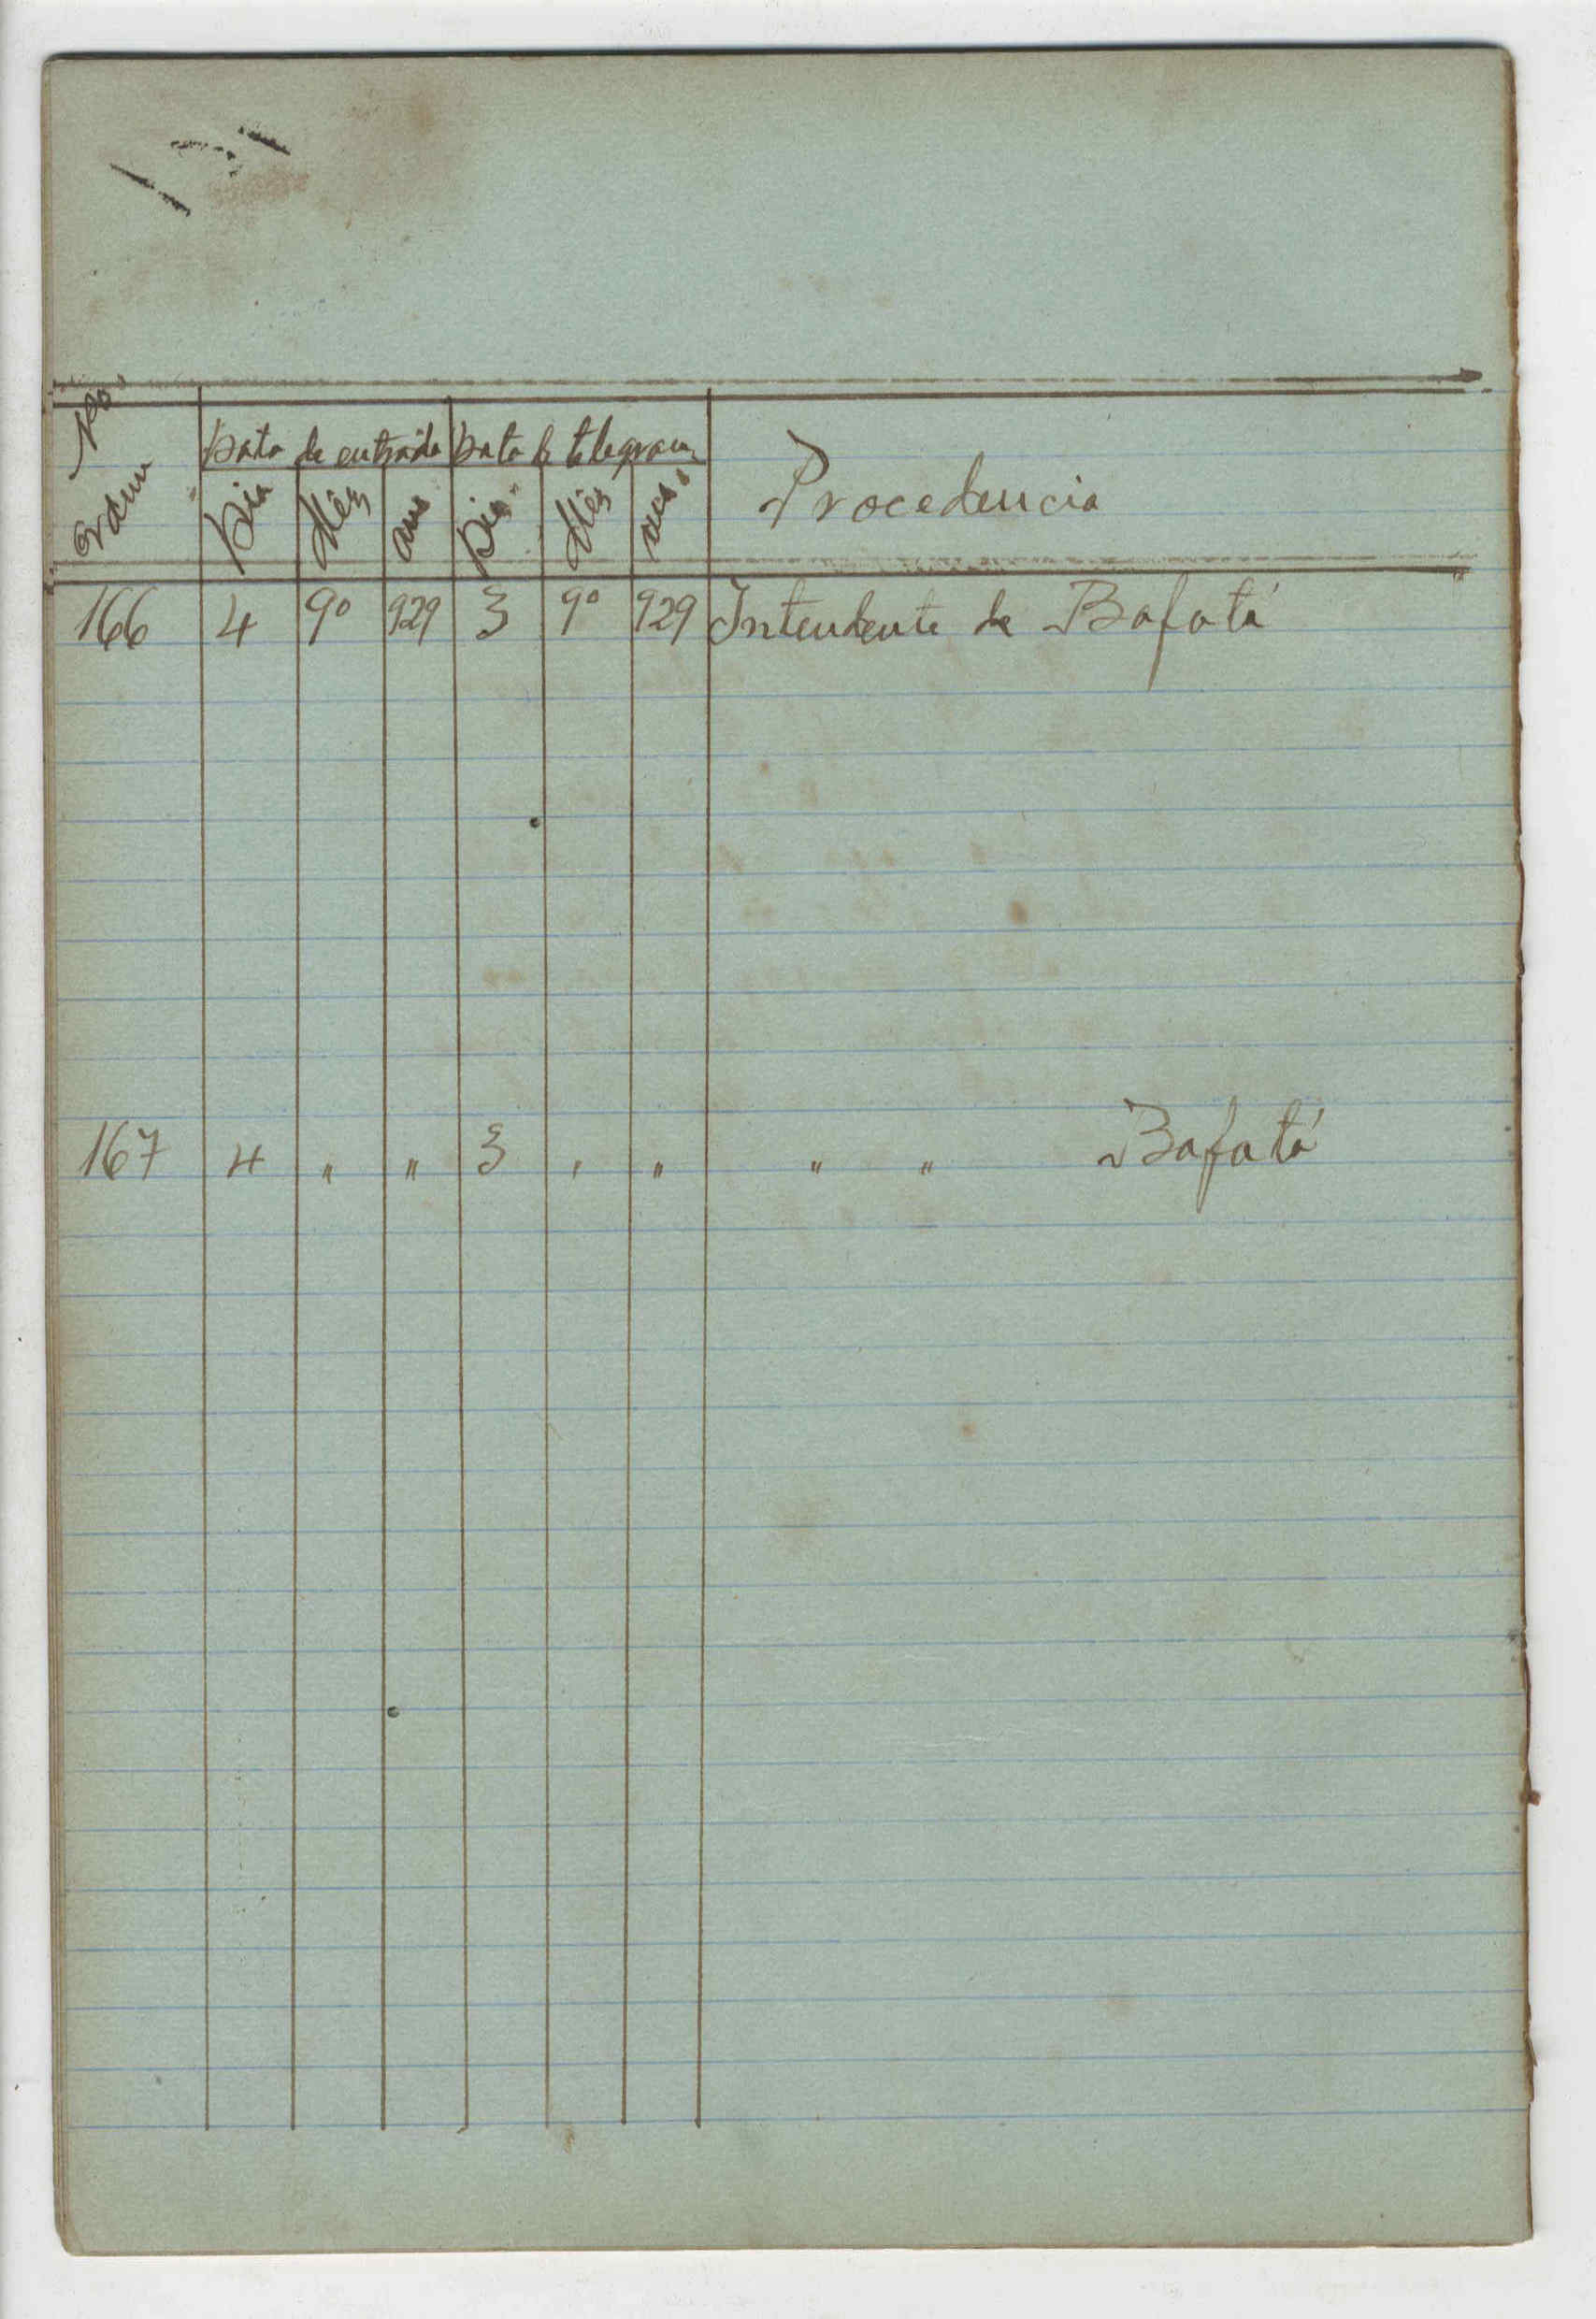 Nos Data de entrada Data de telegram
ordem Dia Mês ano Dia Mês ano Procedencia
166 4 9º 929 3 9º 929 Intendente de Bafatá
167 4 " " 3 " " " " Bafatá